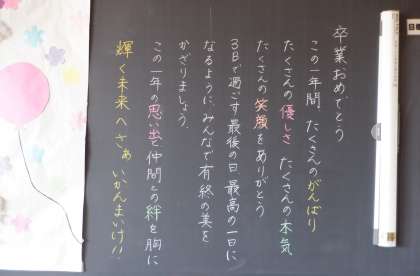 卒業おめでとう
この一年間 たくさんのがんばり
たくさんの優しさ たくさんの本気
たくさんの笑顔をありがとう
3日で過ごす最後の日 最高の一日に
なるように、みんなで有終の美を
かざりましょう。
この一年の思い出と仲間との絆を胸に
輝く未来へ さぁ いかんまいけ!!